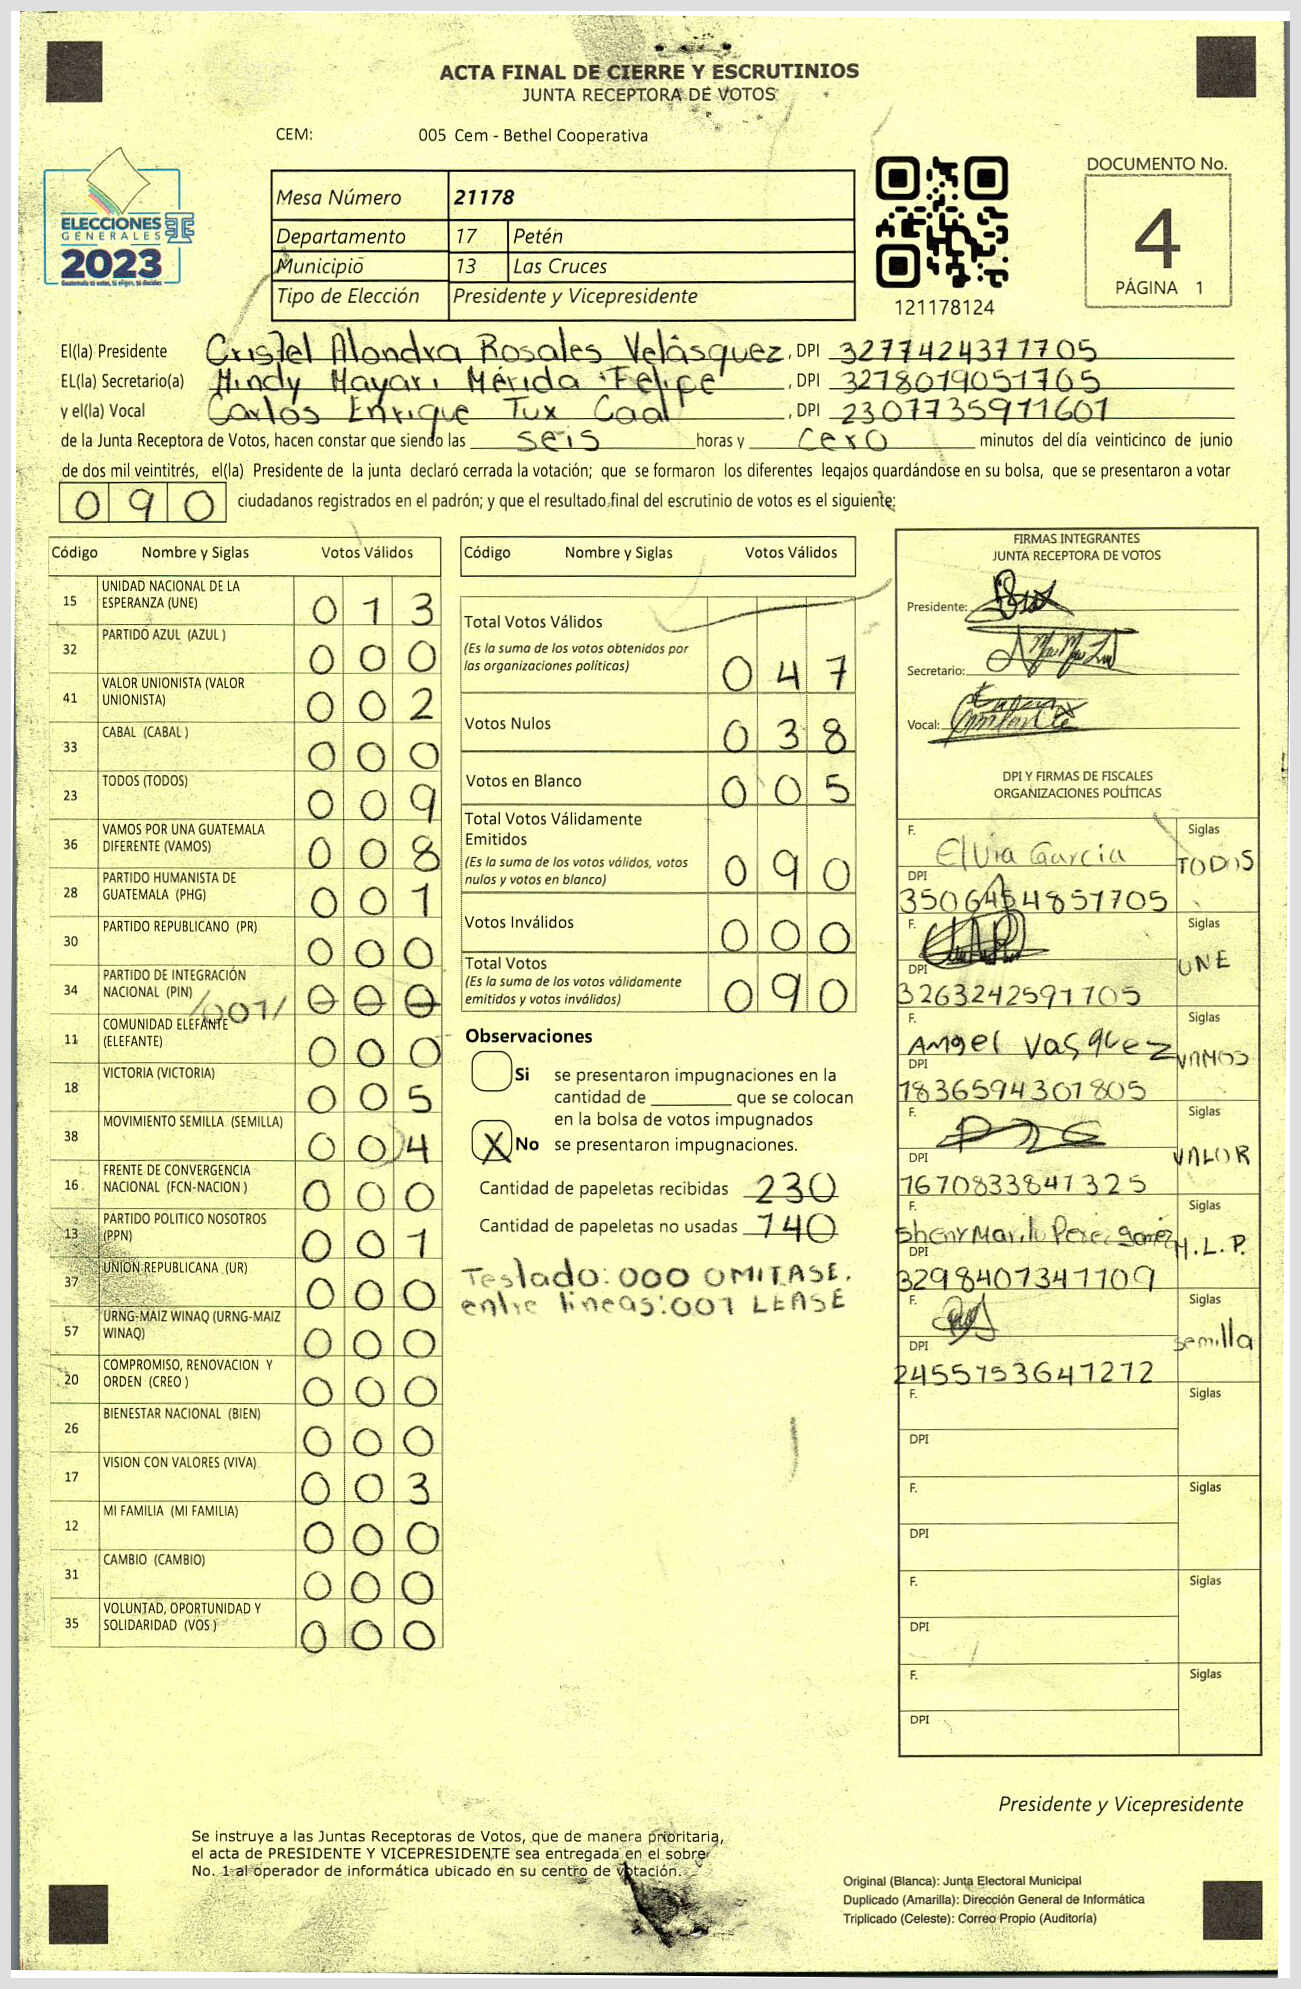 ACTA FINAL DE CIERRE Y ESCRUTINIOS
JUNTA RECEPTORA DE VOTOS
CEM: 005 Cem - Bethel Cooperativa
ELECCIONES
GENERALES
2023
Mesa Número 21178
Departamento 17 Petén
Municipio 13 Las Cruces
Tipo de Elección Presidente y Vicepresidente
121178124
DOCUMENTO No.
4
PÁGINA 1
El(la) Presidente Cristel Alondra Rosales Velásquez, DPI 3277424377705
EL(la) Secretario(a) Hindy Mayari Mérida Felipe, DPI 3278019051705
y el(la) Vocal Carlos Enrique Tux Caal, DPI 2307735911601
de la Junta Receptora de Votos, hacen constar que siendo las seis horas y cero minutos del día veinticinco de junio
de dos mil veintitrés, el(la) Presidente de la junta declaró cerrada la votación; que se formaron los diferentes legajos guardándose en su bolsa, que se presentaron a votar
090 ciudadanos registrados en el padrón; y que el resultado final del escrutinio de votos es el siguiente:
Código Nombre y Siglas Votos Válidos
15 UNIDAD NACIONAL DE LA
ESPERANZA (UNE) 013
32 PARTIDO AZUL (AZUL ) 000
41 VALOR UNIONISTA (VALOR
UNIONISTA) 002
33 CABAL (CABAL ) 000
23 TODOS (TODOS) 009
36 VAMOS POR UNA GUATEMALA
DIFERENTE (VAMOS) 008
28 PARTIDO HUMANISTA DE
GUATEMALA (PHG) 001
30 PARTIDO REPUBLICANO (PR) 000
34 PARTIDO DE INTEGRACIÓN
NACIONAL (PIN) /001/ 000
11 COMUNIDAD ELEFANTE
(ELEFANTE) 000
18 VICTORIA (VICTORIA) 005
38 MOVIMIENTO SEMILLA (SEMILLA) 004
16 FRENTE DE CONVERGENCIA
NACIONAL (FCN-NACION ) 000
13 PARTIDO POLITICO NOSOTROS
(PPN) 001
37 UNION REPUBLICANA (UR) 000
57 URNG-MAIZ WINAQ (URNG-MAIZ
WINAQ) 000
20 COMPROMISO, RENOVACION Y
ORDEN (CREO ) 000
26 BIENESTAR NACIONAL (BIEN) 000
17 VISION CON VALORES (VIVA) 003
12 MI FAMILIA (MI FAMILIA) 000
31 CAMBIO (CAMBIO) 000
35 VOLUNTAD, OPORTUNIDAD Y
SOLIDARIDAD (VOS ) 000
Código Nombre y Siglas Votos Válidos
Total Votos Válidos
(Es la suma de los votos obtenidos por
las organizaciones políticas) 047
Votos Nulos 038
Votos en Blanco 005
Total Votos Válidamente
Emitidos
(Es la suma de los votos válidos, votos
nulos y votos en blanco) 090
Votos Inválidos 000
Total Votos
(Es la suma de los votos válidamente
emitidos y votos inválidos) 090
Observaciones
Si se presentaron impugnaciones en la
cantidad de ________ que se colocan
en la bolsa de votos impugnados
X No se presentaron impugnaciones.
Cantidad de papeletas recibidas 230
Cantidad de papeletas no usadas 140
Teslado: 000 OMITASE.
entre lineas: 001 LEASE
FIRMAS INTEGRANTES
JUNTA RECEPTORA DE VOTOS
Presidente:
Secretario:
Vocal:
DPI Y FIRMAS DE FISCALES
ORGANIZACIONES POLÍTICAS
F. Elvia Garcia Siglas TODOS
DPI 3506454851705
F. Siglas UNE
DPI 3263242591705
F. Angel Vasquez Siglas VAMOS
DPI 1836594301805
F. Siglas VALOR
DPI 1670833841325
F. Sheny Marilu Perez Gomez Siglas M.L.P.
DPI 3298407341109
F. Siglas semilla
DPI 2455153641212
F. Siglas
DPI
F. Siglas
DPI
F. Siglas
DPI
F. Siglas
DPI
Presidente y Vicepresidente
Se instruye a las Juntas Receptoras de Votos, que de manera prioritaria,
el acta de PRESIDENTE Y VICEPRESIDENTE sea entregada en el sobre
No. 1 al operador de informática ubicado en su centro de votación.
Original (Blanca): Junta Electoral Municipal
Duplicado (Amarilla): Dirección General de Informática
Triplicado (Celeste): Correo Propio (Auditoría)